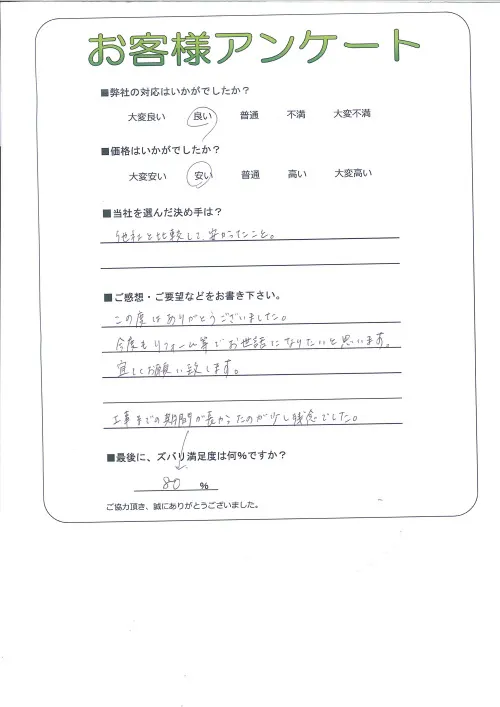 お客様アンケート
■弊社の対応はいかがでしたか？
大変良い 良い 普通 不満 大変不満
■価格はいかがでしたか？
大変安い 安い 普通 高い 大変高い
■当社を選んだ決め手は？
他社と比較して、安かったこと。
■ご感想・ご要望などをお書き下さい。
この度はありがとうございました。
今度もリフォーム等でお世話になりたいと思います。
宜しくお願い致します。
工事までの期間が長かったのが少し残念でした。
■最後に、ズバリ満足度は何%ですか？
80 %
ご協力頂き、誠にありがとうございました。